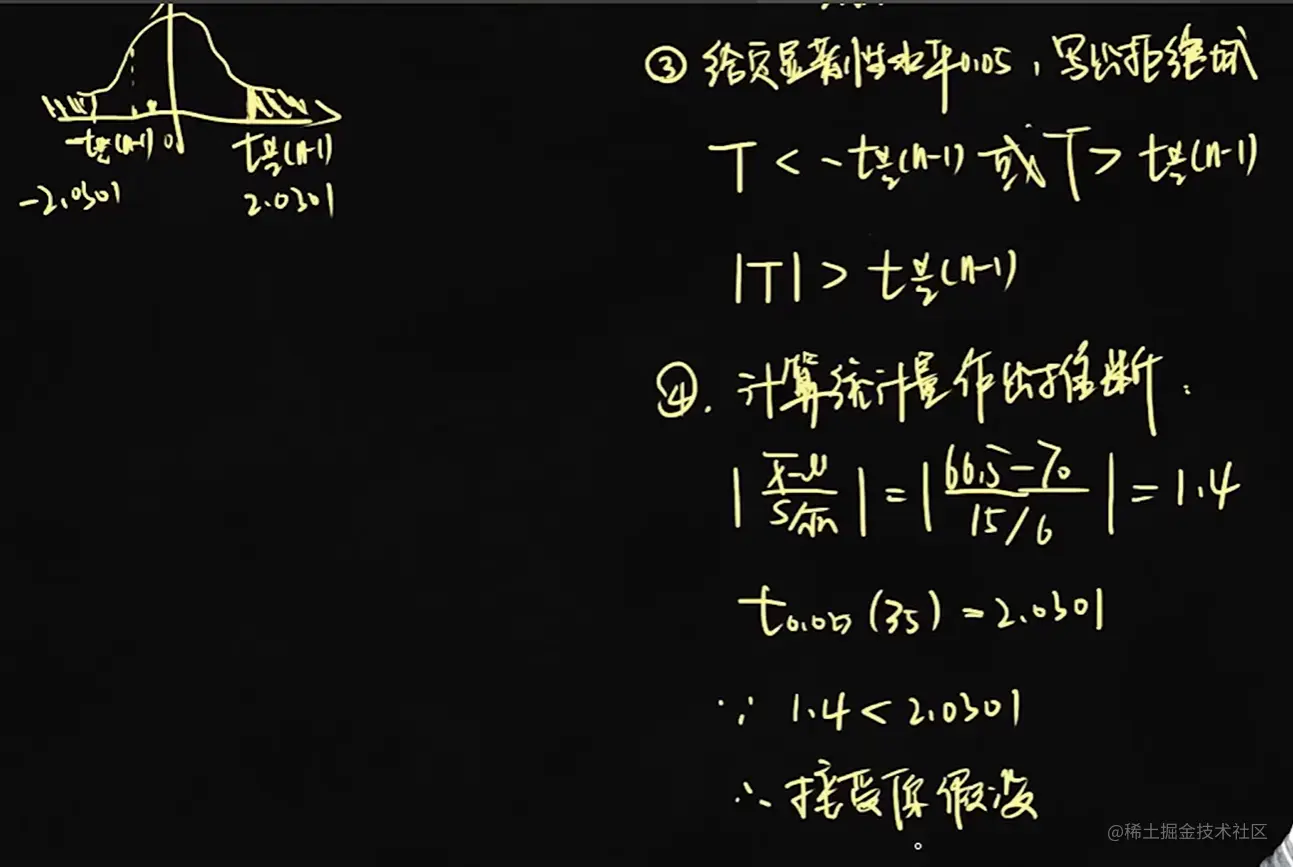 -t α/2 (n-1) 0 t α/2 (n-1)
-2.0301 2.0301
③ 给定显著性水平0.05，写出拒绝域
T < -t α/2 (n-1) 或 T > t α/2 (n-1)
|T| > t α/2 (n-1)
④. 计算统计量作出推断：
|(x̄-μ)/(S/√n)| = |(66.5-70)/(15/6)| = 1.4
t0.05 (35) = 2.0301
∵ 1.4 < 2.0301
∴ 接受原假设
@稀土掘金技术社区